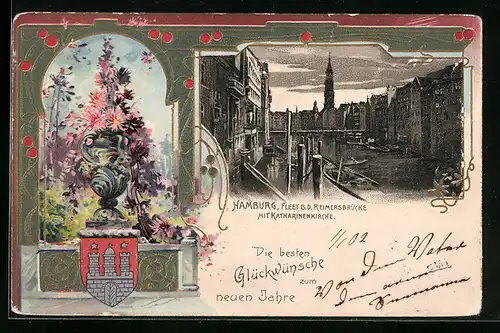 HAMBURG, FLEET B.D. REIMERSBRÜCKE
MIT KATHARINENKIRCHE.
Die besten
Glückwünsche
zum
neuen Jahre
1/1 02
Von dem Vater